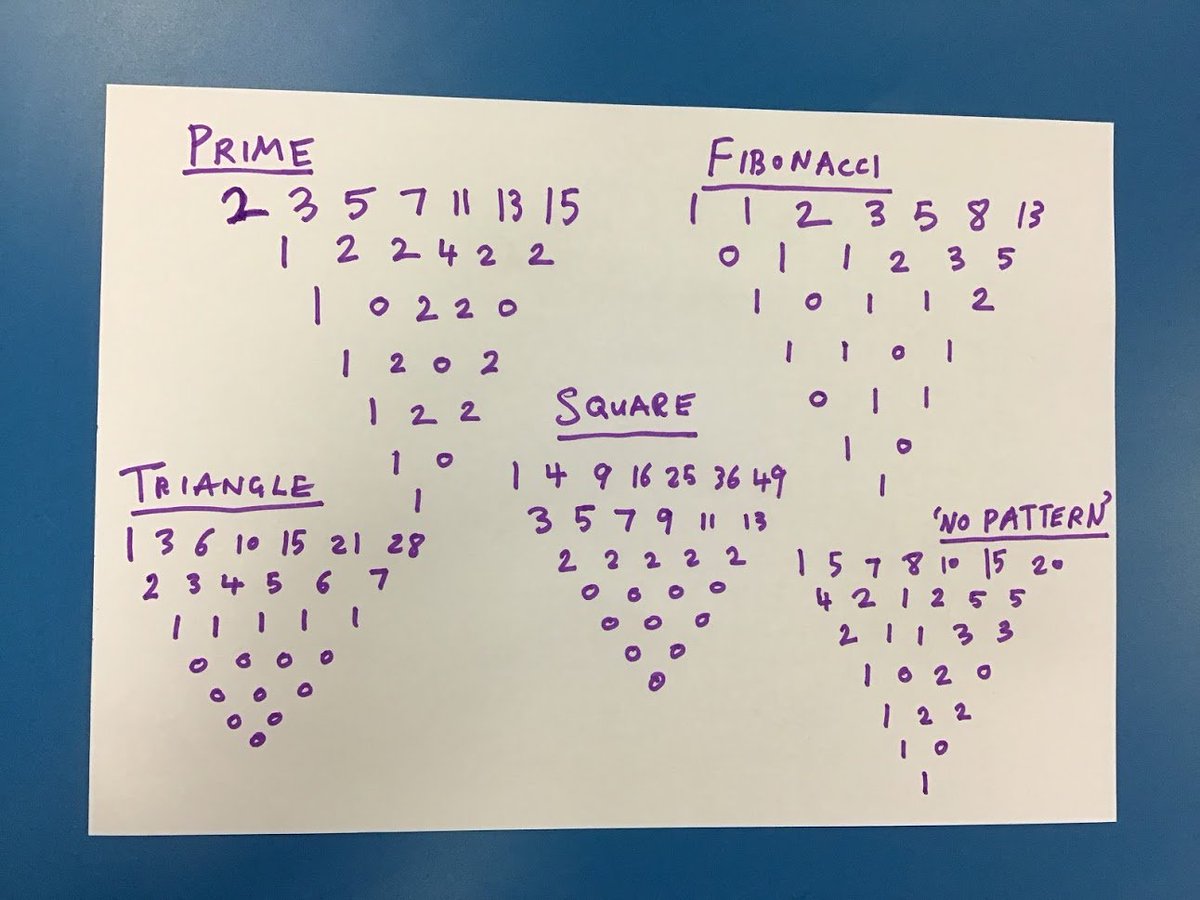 PRIME
2 3 5 7 11 13 15
1 2 2 4 2 2
1 0 2 2 0
1 2 0 2
1 2 2
1 0
1
FIBONACCI
1 1 2 3 5 8 13
0 1 1 2 3 5
1 0 1 1 2
1 1 0 1
0 1 1
1 0
1
TRIANGLE
1 3 6 10 15 21 28
2 3 4 5 6 7
1 1 1 1 1
0 0 0 0
0 0 0
0 0
0
SQUARE
1 4 9 16 25 36 49
3 5 7 9 11 13
2 2 2 2 2
0 0 0 0
0 0 0
0 0
0
'NO PATTERN'
1 5 7 8 10 15 20
4 2 1 2 5 5
2 1 1 3 3
1 0 2 0
1 2 2
1 0
1